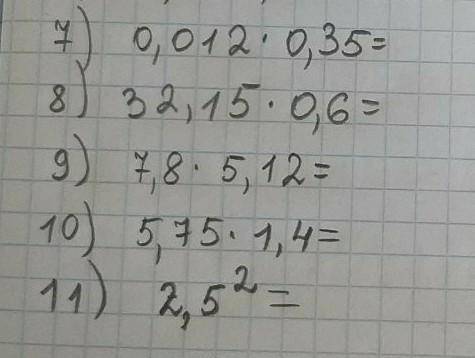 7) 0,012 · 0,35=
8) 32,15 · 0,6=
9) 7,8 · 5,12=
10) 5,75 · 1,4=
11) 2,5²=